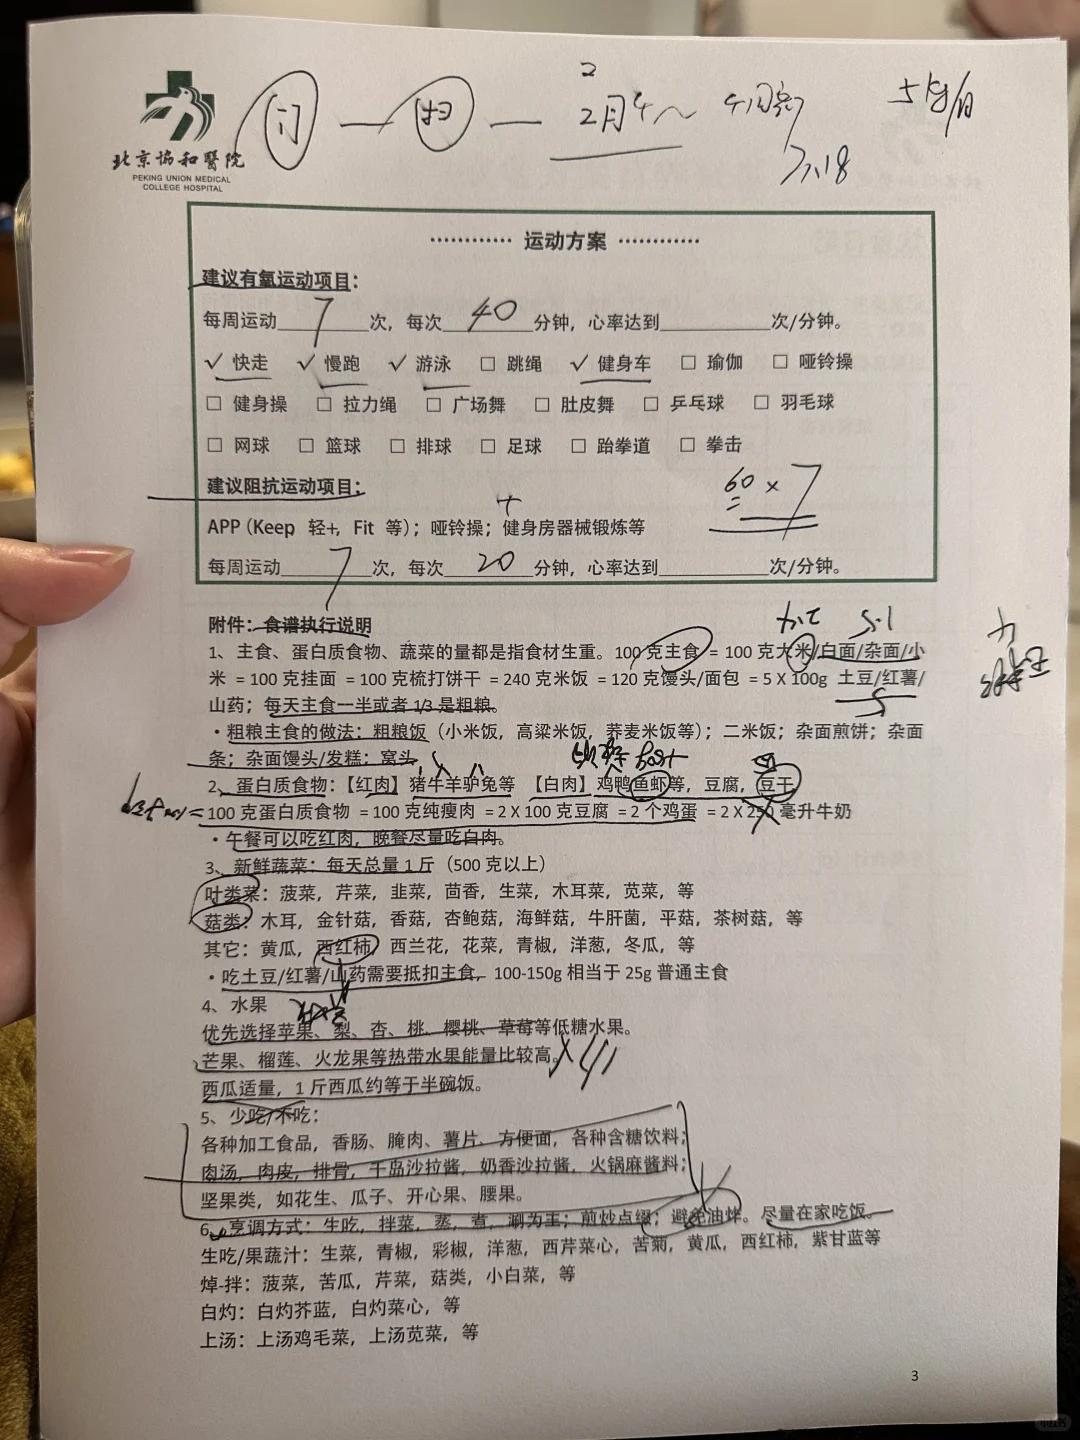 北京協和醫院
PEKING UNION MEDICAL
COLLEGE HOSPITAL
门 — 扫 — 2月
7.18
………… 运动方案 …………
建议有氧运动项目:
每周运动 7 次，每次 40 分钟，心率达到 次/分钟。
✓ 快走 ✓ 慢跑 ✓ 游泳 □ 跳绳 ✓ 健身车 □ 瑜伽 □ 哑铃操
□ 健身操 □ 拉力绳 □ 广场舞 □ 肚皮舞 □ 乒乓球 □ 羽毛球
□ 网球 □ 篮球 □ 排球 □ 足球 □ 跆拳道 □ 拳击
建议阻抗运动项目:
60 × 7
+
APP（Keep 轻+，Fit 等）；哑铃操；健身房器械锻炼等
每周运动 7 次，每次 20 分钟，心率达到 次/分钟。
附件：食谱执行说明
1、主食、蛋白质食物、蔬菜的量都是指食材生重。100 克主食 = 100 克大米/白面/杂面/小
米 = 100 克挂面 = 100 克梳打饼干 = 240 克米饭 = 120 克馒头/面包 = 5 X 100g 土豆/红薯/
山药；每天主食一半或者 1/3 是粗粮。
·粗粮主食的做法：粗粮饭（小米饭，高粱米饭，荞麦米饭等）；二米饭；杂面煎饼；杂面
条；杂面馒头/发糕；窝头
2、蛋白质食物：【红肉】猪牛羊驴兔等 【白肉】鸡鸭鱼虾等，豆腐，豆干
100 克蛋白质食物 = 100 克纯瘦肉 = 2 X 100 克豆腐 = 2 个鸡蛋 = 2 X 250 毫升牛奶
·午餐可以吃红肉，晚餐尽量吃白肉。
3、新鲜蔬菜：每天总量 1 斤（500 克以上）
叶类菜：菠菜，芹菜，韭菜，茴香，生菜，木耳菜，苋菜，等
菇类：木耳，金针菇，香菇，杏鲍菇，海鲜菇，牛肝菌，平菇，茶树菇，等
其它：黄瓜，西红柿，西兰花，花菜，青椒，洋葱，冬瓜，等
·吃土豆/红薯/山药需要抵扣主食，100-150g 相当于 25g 普通主食
4、水果
优先选择苹果、梨、杏、桃、樱桃、草莓等低糖水果。
芒果、榴莲、火龙果等热带水果能量比较高。
西瓜适量，1 斤西瓜约等于半碗饭。
5、少吃/不吃：
各种加工食品，香肠、腌肉、薯片、方便面，各种含糖饮料；
肉汤，肉皮，排骨，千岛沙拉酱，奶香沙拉酱，火锅麻酱料；
坚果类，如花生、瓜子、开心果、腰果。
6、烹调方式：生吃，拌菜，蒸，煮，涮为主；煎炒点缀；避免油炸。尽量在家吃饭。
生吃/果蔬汁：生菜，青椒，彩椒，洋葱，西芹菜心，苦菊，黄瓜，西红柿，紫甘蓝等
焯-拌：菠菜，苦瓜，芹菜，菇类，小白菜，等
白灼：白灼芥蓝，白灼菜心，等
上汤：上汤鸡毛菜，上汤苋菜，等
3